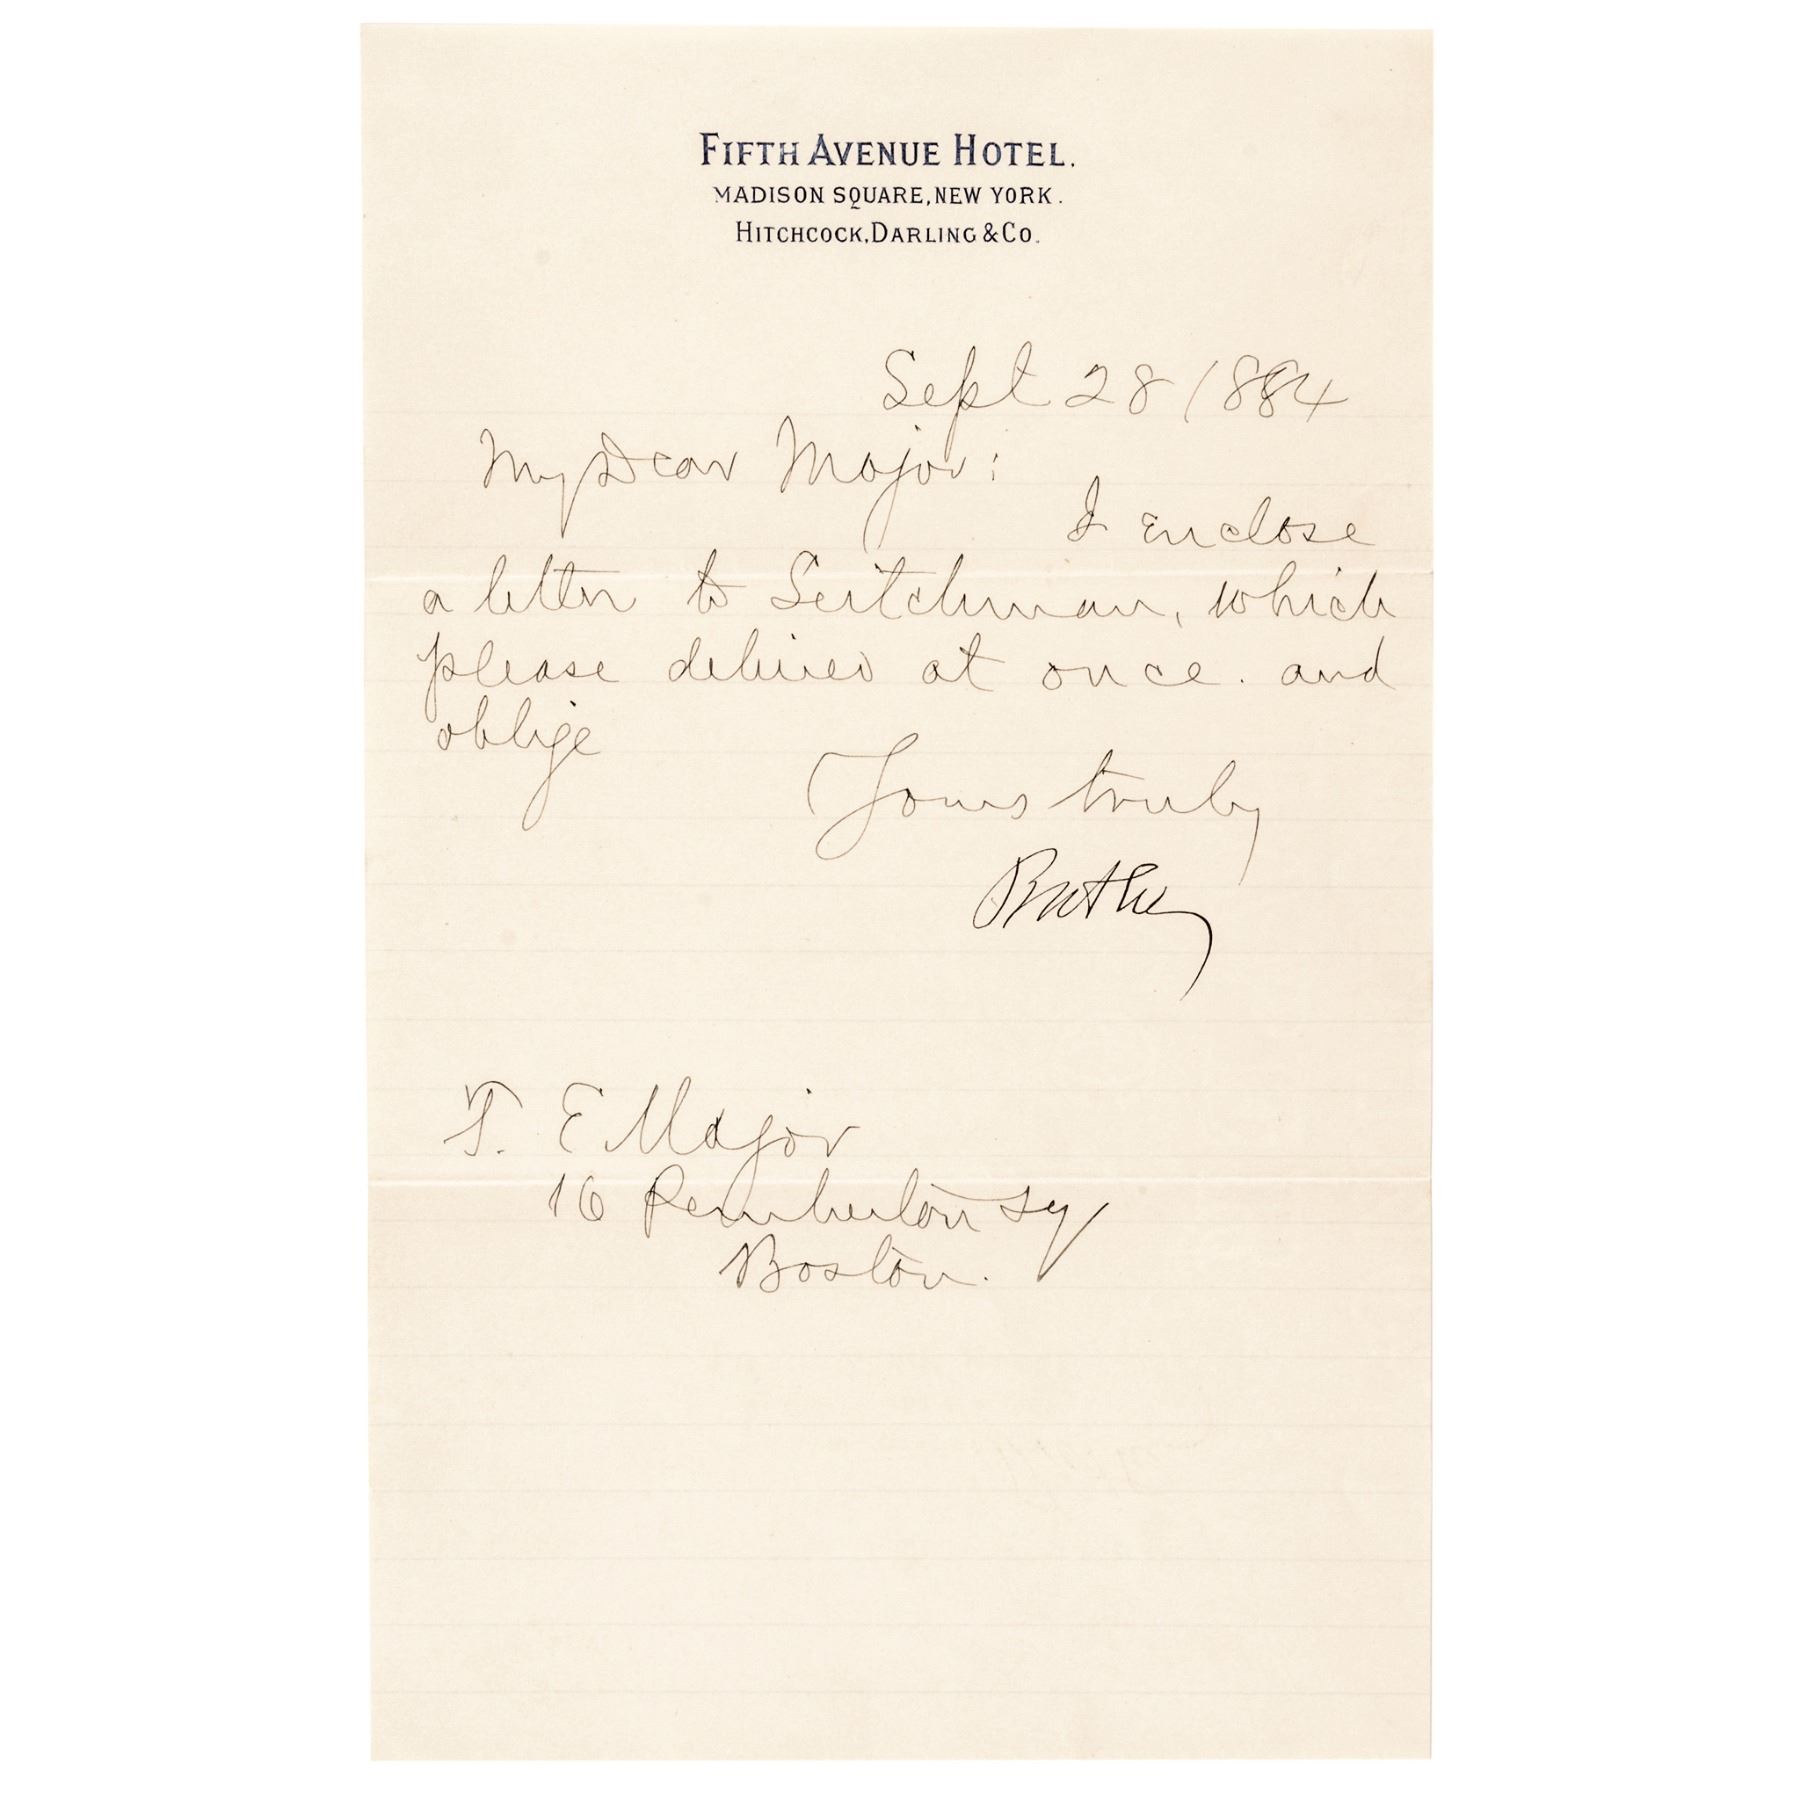 FIFTH AVENUE HOTEL.
MADISON SQUARE, NEW YORK.
HITCHCOCK, DARLING & CO.
Sept 28 1884
My Dear Major:
I enclose
a letter to which
please deliver at once. and
oblige
Yours truly
Butler
T. E Major
16 Pemberton Sq
Boston.